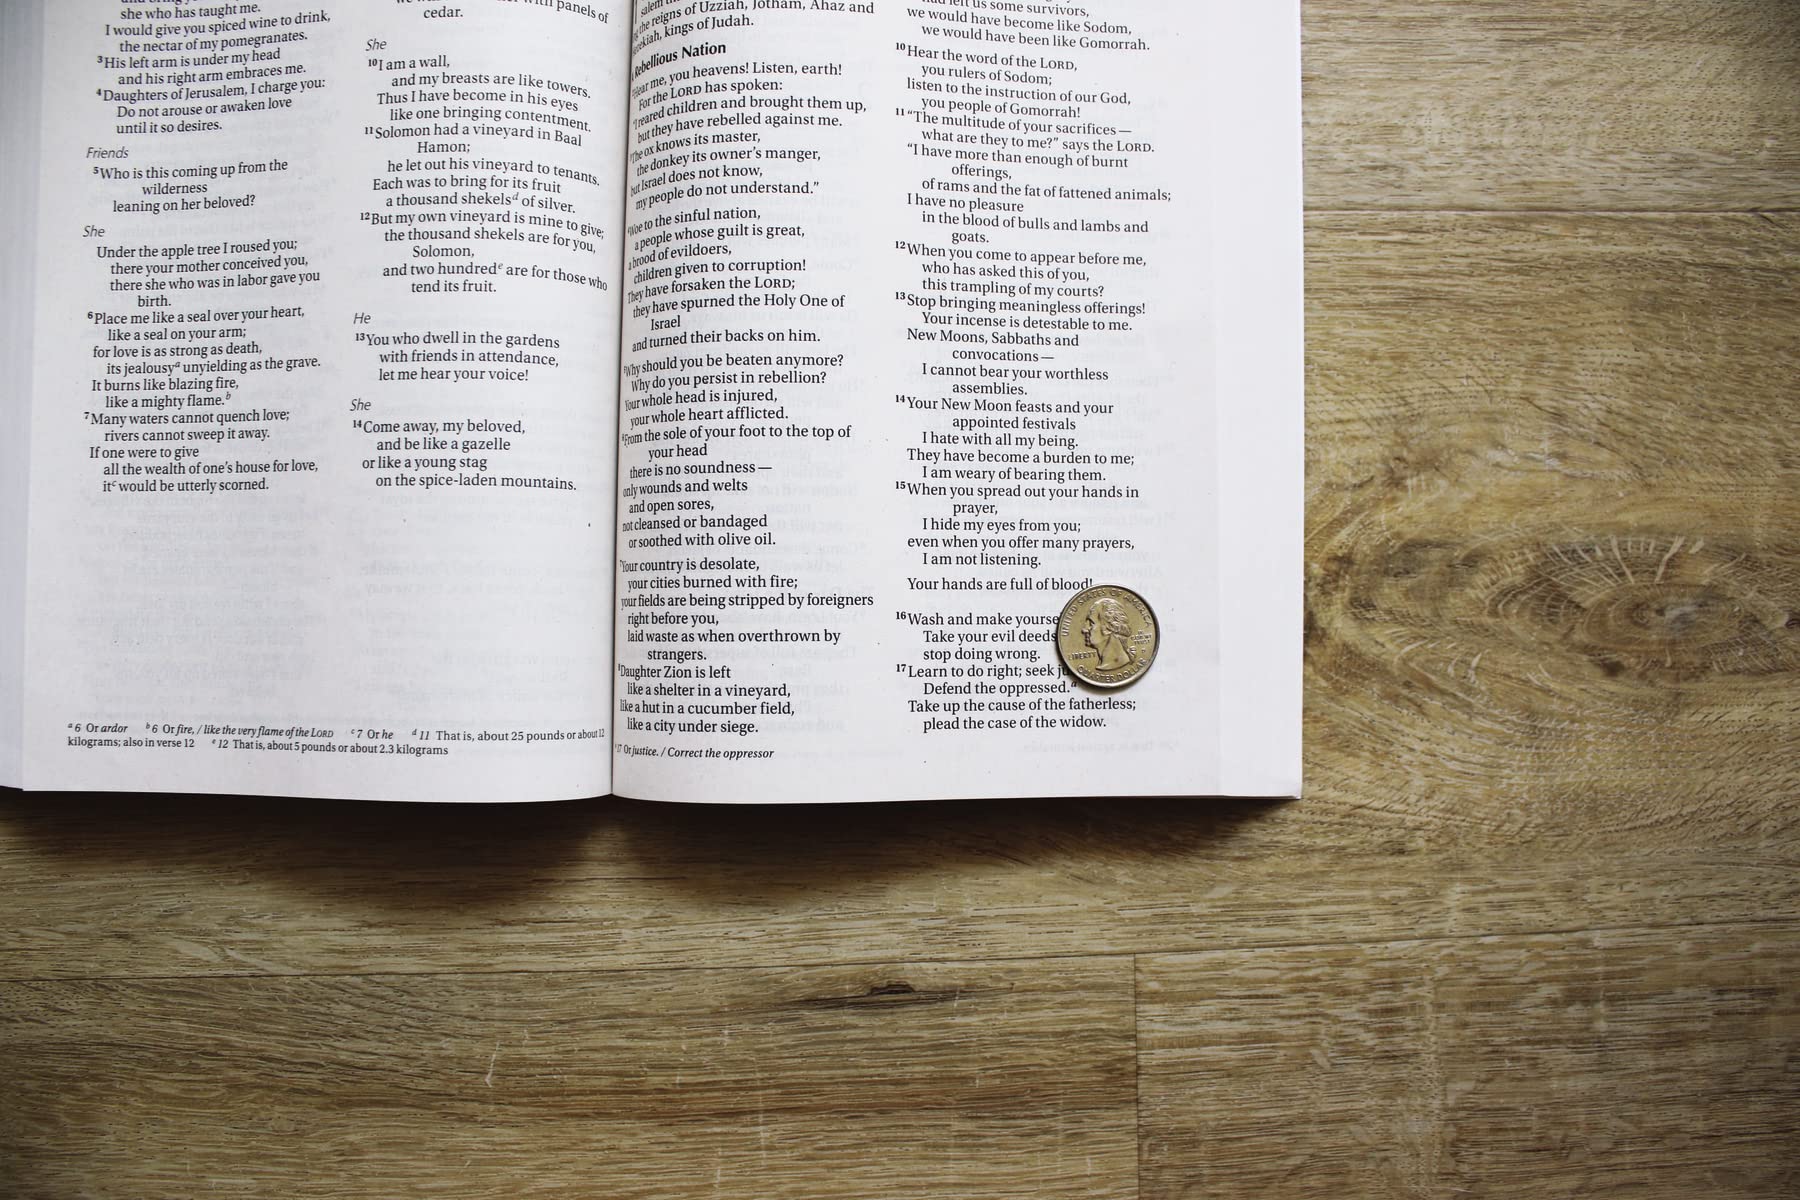 she who has taught me.
I would give you spiced wine to drink,
the nectar of my pomegranates.
3 His left arm is under my head
and his right arm embraces me.
4 Daughters of Jerusalem, I charge you:
Do not arouse or awaken love
until it so desires.
Friends
5 Who is this coming up from the
wilderness
leaning on her beloved?
She
Under the apple tree I roused you;
there your mother conceived you,
there she who was in labor gave you
birth.
6 Place me like a seal over your heart,
like a seal on your arm;
for love is as strong as death,
its jealousy a unyielding as the grave.
It burns like blazing fire,
like a mighty flame. b
7 Many waters cannot quench love;
rivers cannot sweep it away.
If one were to give
all the wealth of one's house for love,
it c would be utterly scorned.
with panels of
cedar.
She
10 I am a wall,
and my breasts are like towers.
Thus I have become in his eyes
like one bringing contentment.
11 Solomon had a vineyard in Baal
Hamon;
he let out his vineyard to tenants.
Each was to bring for its fruit
a thousand shekels d of silver.
12 But my own vineyard is mine to give;
the thousand shekels are for you,
Solomon,
and two hundred e are for those who
tend its fruit.
He
13 You who dwell in the gardens
with friends in attendance,
let me hear your voice!
She
14 Come away, my beloved,
and be like a gazelle
or like a young stag
on the spice-laden mountains.
a 6 Or ardor b 6 Or fire, / like the very flame of the LORD c 7 Or he d 11 That is, about 25 pounds or about 12
kilograms; also in verse 12 e 12 That is, about 5 pounds or about 2.3 kilograms
the reigns of Uzziah, Jotham, Ahaz and
kings of Judah.
Rebellious Nation
me, you heavens! Listen, earth!
For the LORD has spoken:
"I reared children and brought them up,
but they have rebelled against me.
The ox knows its master,
the donkey its owner's manger,
but Israel does not know,
my people do not understand."
Woe to the sinful nation,
a people whose guilt is great,
a brood of evildoers,
children given to corruption!
They have forsaken the LORD;
they have spurned the Holy One of
Israel
and turned their backs on him.
Why should you be beaten anymore?
Why do you persist in rebellion?
Your whole head is injured,
your whole heart afflicted.
6 From the sole of your foot to the top of
your head
there is no soundness—
only wounds and welts
and open sores,
not cleansed or bandaged
or soothed with olive oil.
7 Your country is desolate,
your cities burned with fire;
your fields are being stripped by foreigners
right before you,
laid waste as when overthrown by
strangers.
8 Daughter Zion is left
like a shelter in a vineyard,
like a hut in a cucumber field,
like a city under siege.
a 17 Or justice. / Correct the oppressor
left us some survivors,
we would have become like Sodom,
we would have been like Gomorrah.
10 Hear the word of the LORD,
you rulers of Sodom;
listen to the instruction of our God,
you people of Gomorrah!
11 "The multitude of your sacrifices—
what are they to me?" says the LORD.
"I have more than enough of burnt
offerings,
of rams and the fat of fattened animals;
I have no pleasure
in the blood of bulls and lambs and
goats.
12 When you come to appear before me,
who has asked this of you,
this trampling of my courts?
13 Stop bringing meaningless offerings!
Your incense is detestable to me.
New Moons, Sabbaths and
convocations—
I cannot bear your worthless
assemblies.
14 Your New Moon feasts and your
appointed festivals
I hate with all my being.
They have become a burden to me;
I am weary of bearing them.
15 When you spread out your hands in
prayer,
I hide my eyes from you;
even when you offer many prayers,
I am not listening.
Your hands are full of blood!
16 Wash and make yourse
Take your evil deeds
stop doing wrong.
17 Learn to do right; seek ju
Defend the oppressed. a
Take up the cause of the fatherless;
plead the case of the widow.
UNITED STATES OF AMERICA
LIBERTY
IN GOD WE TRUST
P
QUARTER DOLLAR